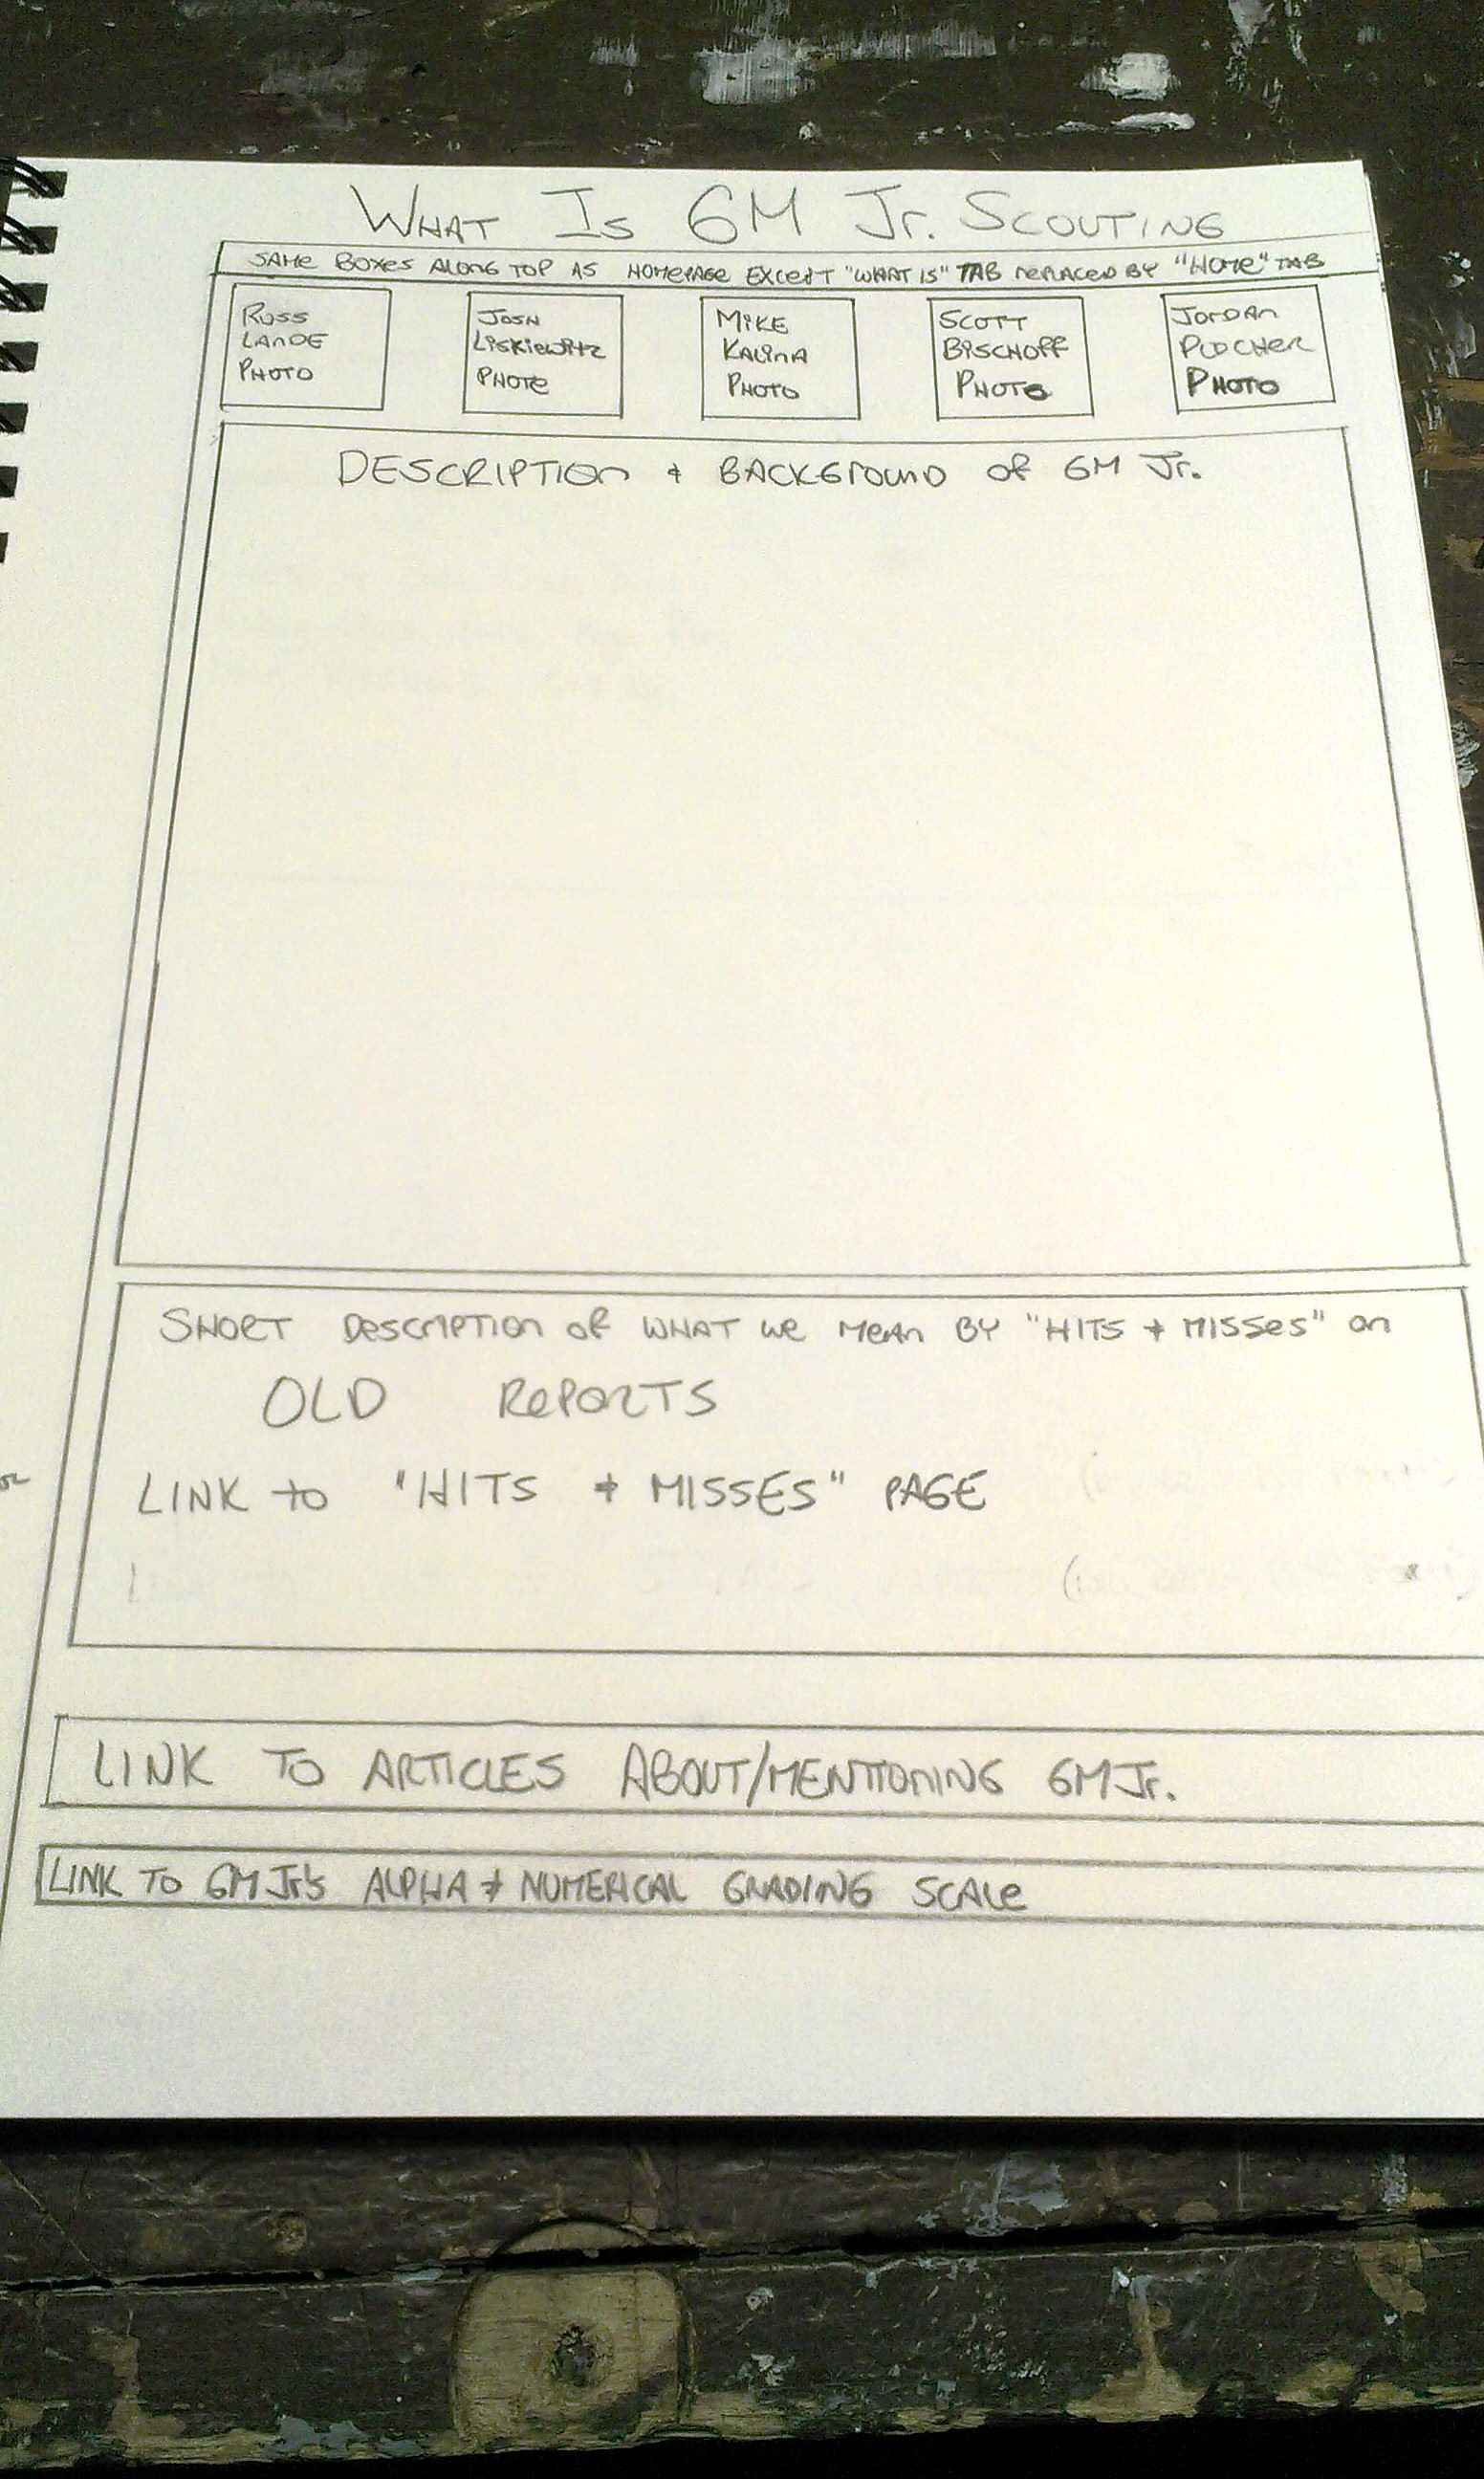 WHAT IS GM Jr. SCOUTING
SAME BOXES ALONG TOP AS HOMEPAGE EXCEPT "WHAT IS" TAB REPLACED BY "HOME" TAB
RUSS
LANDE
PHOTO
JOSH
LISKIEWITZ
PHOTO
MIKE
KALINA
PHOTO
SCOTT
BISCHOFF
PHOTO
JORDAN
PLOCHER
PHOTO
DESCRIPTION & BACKGROUND OF GM Jr.
SHORT DESCRIPTION OF WHAT WE MEAN BY "HITS & MISSES" ON
OLD REPORTS
LINK TO "HITS & MISSES" PAGE
LINK TO ARTICLES ABOUT/MENTIONING GM Jr.
LINK TO GM Jr's ALPHA & NUMERICAL GRADING SCALE